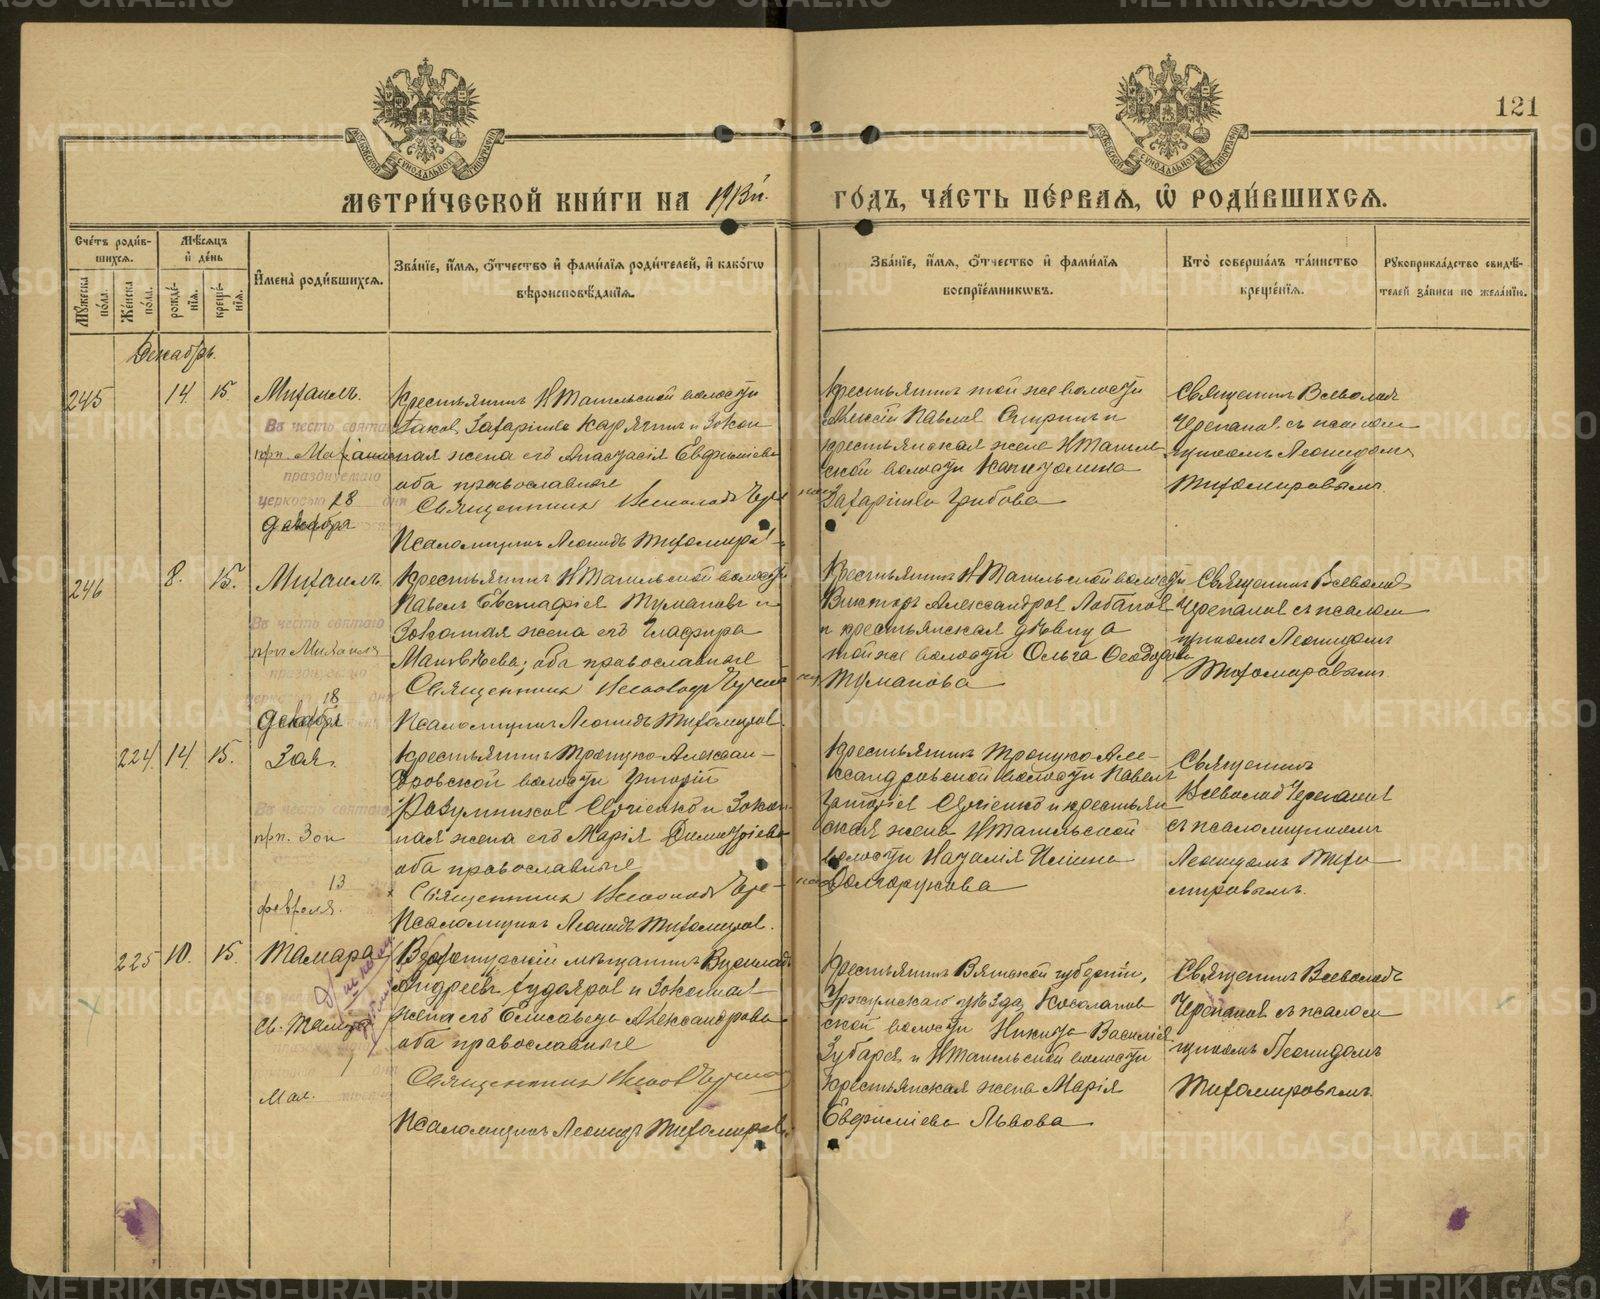 121
МЕТРИ́ЧЕСКОЙ КНИ́ГИ НА 1913й. ГО́ДЪ, ЧА́СТЬ ПЕ́РВАѦ, Ѽ РОДИ́ВШИХСѦ.
Сче́тъ роди́вшихсѧ.
Мꙋжеска по́ла.
Же́нска по́ла.
Мѣ́сѧцъ и҆ де́нь
рожде́нїѧ.
креще́нїѧ.
И҆мена̀ роди́вшихсѧ.
Зва́нїе, и҆́мѧ, ѻ҆́тчество и҆ фами́лїѧ роди́телей, и҆ како́гѡ
вѣроисповѣ́данїѧ.
Зва́нїе, и҆́мѧ, ѻ҆́тчество и҆ фами́лїѧ
воспрїе́мникѡвъ.
Кто̀ соверша́лъ та́инство
креще́нїѧ.
Рꙋкоприкла́дство свидѣ́-
телей за́писи по жела́нїю.
Декабрь.
245 14 15. Михаилъ.
Въ честь святаго
прп. Михаила
празднуемаго
церковью 18 дня
декабря
Крестьянинъ НТагильской волости
Іаковъ Захаріевъ Карягинъ и Закон
ная жена его Анастасія Евфиміева
оба православные
Священникъ Всеволодъ Черепановъ
Псаломщикъ Леонидъ Тихомиров
Крестьянинъ той же волости
Алексій Павлов Спиринъ и
крестьянская жена НТагиль
ской волости Капитолина
Захаріева Грибова
Священникъ Всеволодъ
Черепановъ съ псалом
щикомъ Леонидомъ
Тихомировымъ.
246 8. 15. Михаилъ.
Въ честь святаго
прп Михаила
18 дня
декабря
Крестьянинъ НТагильской волости
Павелъ Евстафіев Тумановъ и
Законная жена его Глафира
Матвѣева; оба православные
Священникъ Всеволодъ Черепановъ
Псаломщикъ Леонидъ Тихомиров.
Крестьянинъ НТагильской волости
Викторъ Александров Лобанов
и крестьянская дѣвица
той же волости Ольга Ѳеодорова
Туманова
Священникъ Всеволодъ
Черепанов съ псалом
щикомъ Леонидомъ
Тихомировымъ.
224 14 15. Зоя.
Въ честь святаго
прп. Зои
13
февраля.
Крестьянинъ Троицко-Алексан-
дровской волости Григорій
Сергіенко и Закон
ная жена его Марія Димитріева
оба православные
Священникъ Всеволодъ Чере-
Псаломщикъ Леонидъ Тихомиров.
Крестьянинъ Троицко-Але-
ксандровской волости Павелъ
Григоріев Сергіенко и крестьян
ская жена НТагильской
волости Наталія Ильина
Долгорукова
Священникъ
Всеволод Черепанов
съ псаломщикомъ
Леонидомъ Тихо
мировымъ.
225 10. 15. Тамара
св. Тамары
1
Мая.
Верхотурскій мѣщанинъ Всеволодъ
Андреевъ и Законная
жена его Елисавета Александрова
оба православные
Священникъ Всеволодъ Черепановъ
Псаломщикъ Леонидъ Тихомиров.
Крестьянинъ Вятской губерніи,
Уржумскаго уѣзда, Косолапов
ской волости Никита Василіев
Зубарев и НТагильской волости
крестьянская жена Марія
Евфиміева Львова
Священникъ Всеволодъ
Черепанов съ псалом
щикомъ Леонидомъ
Тихомировымъ.
METRIKI.GASO-URAL.RU